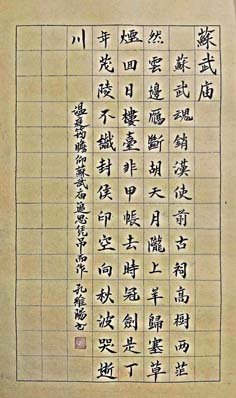 蘇武庙
蘇武魂銷漢使前古祠高樹两茫
然雲邊鴈斷胡天月隴上羊歸塞草
煙回日樓臺非甲帳去時冠劍是丁
年茂陵不識封侯印空向秋波哭逝
川
温庭筠瞻仰蘇武庙追思凭吊而作 孔維陽书